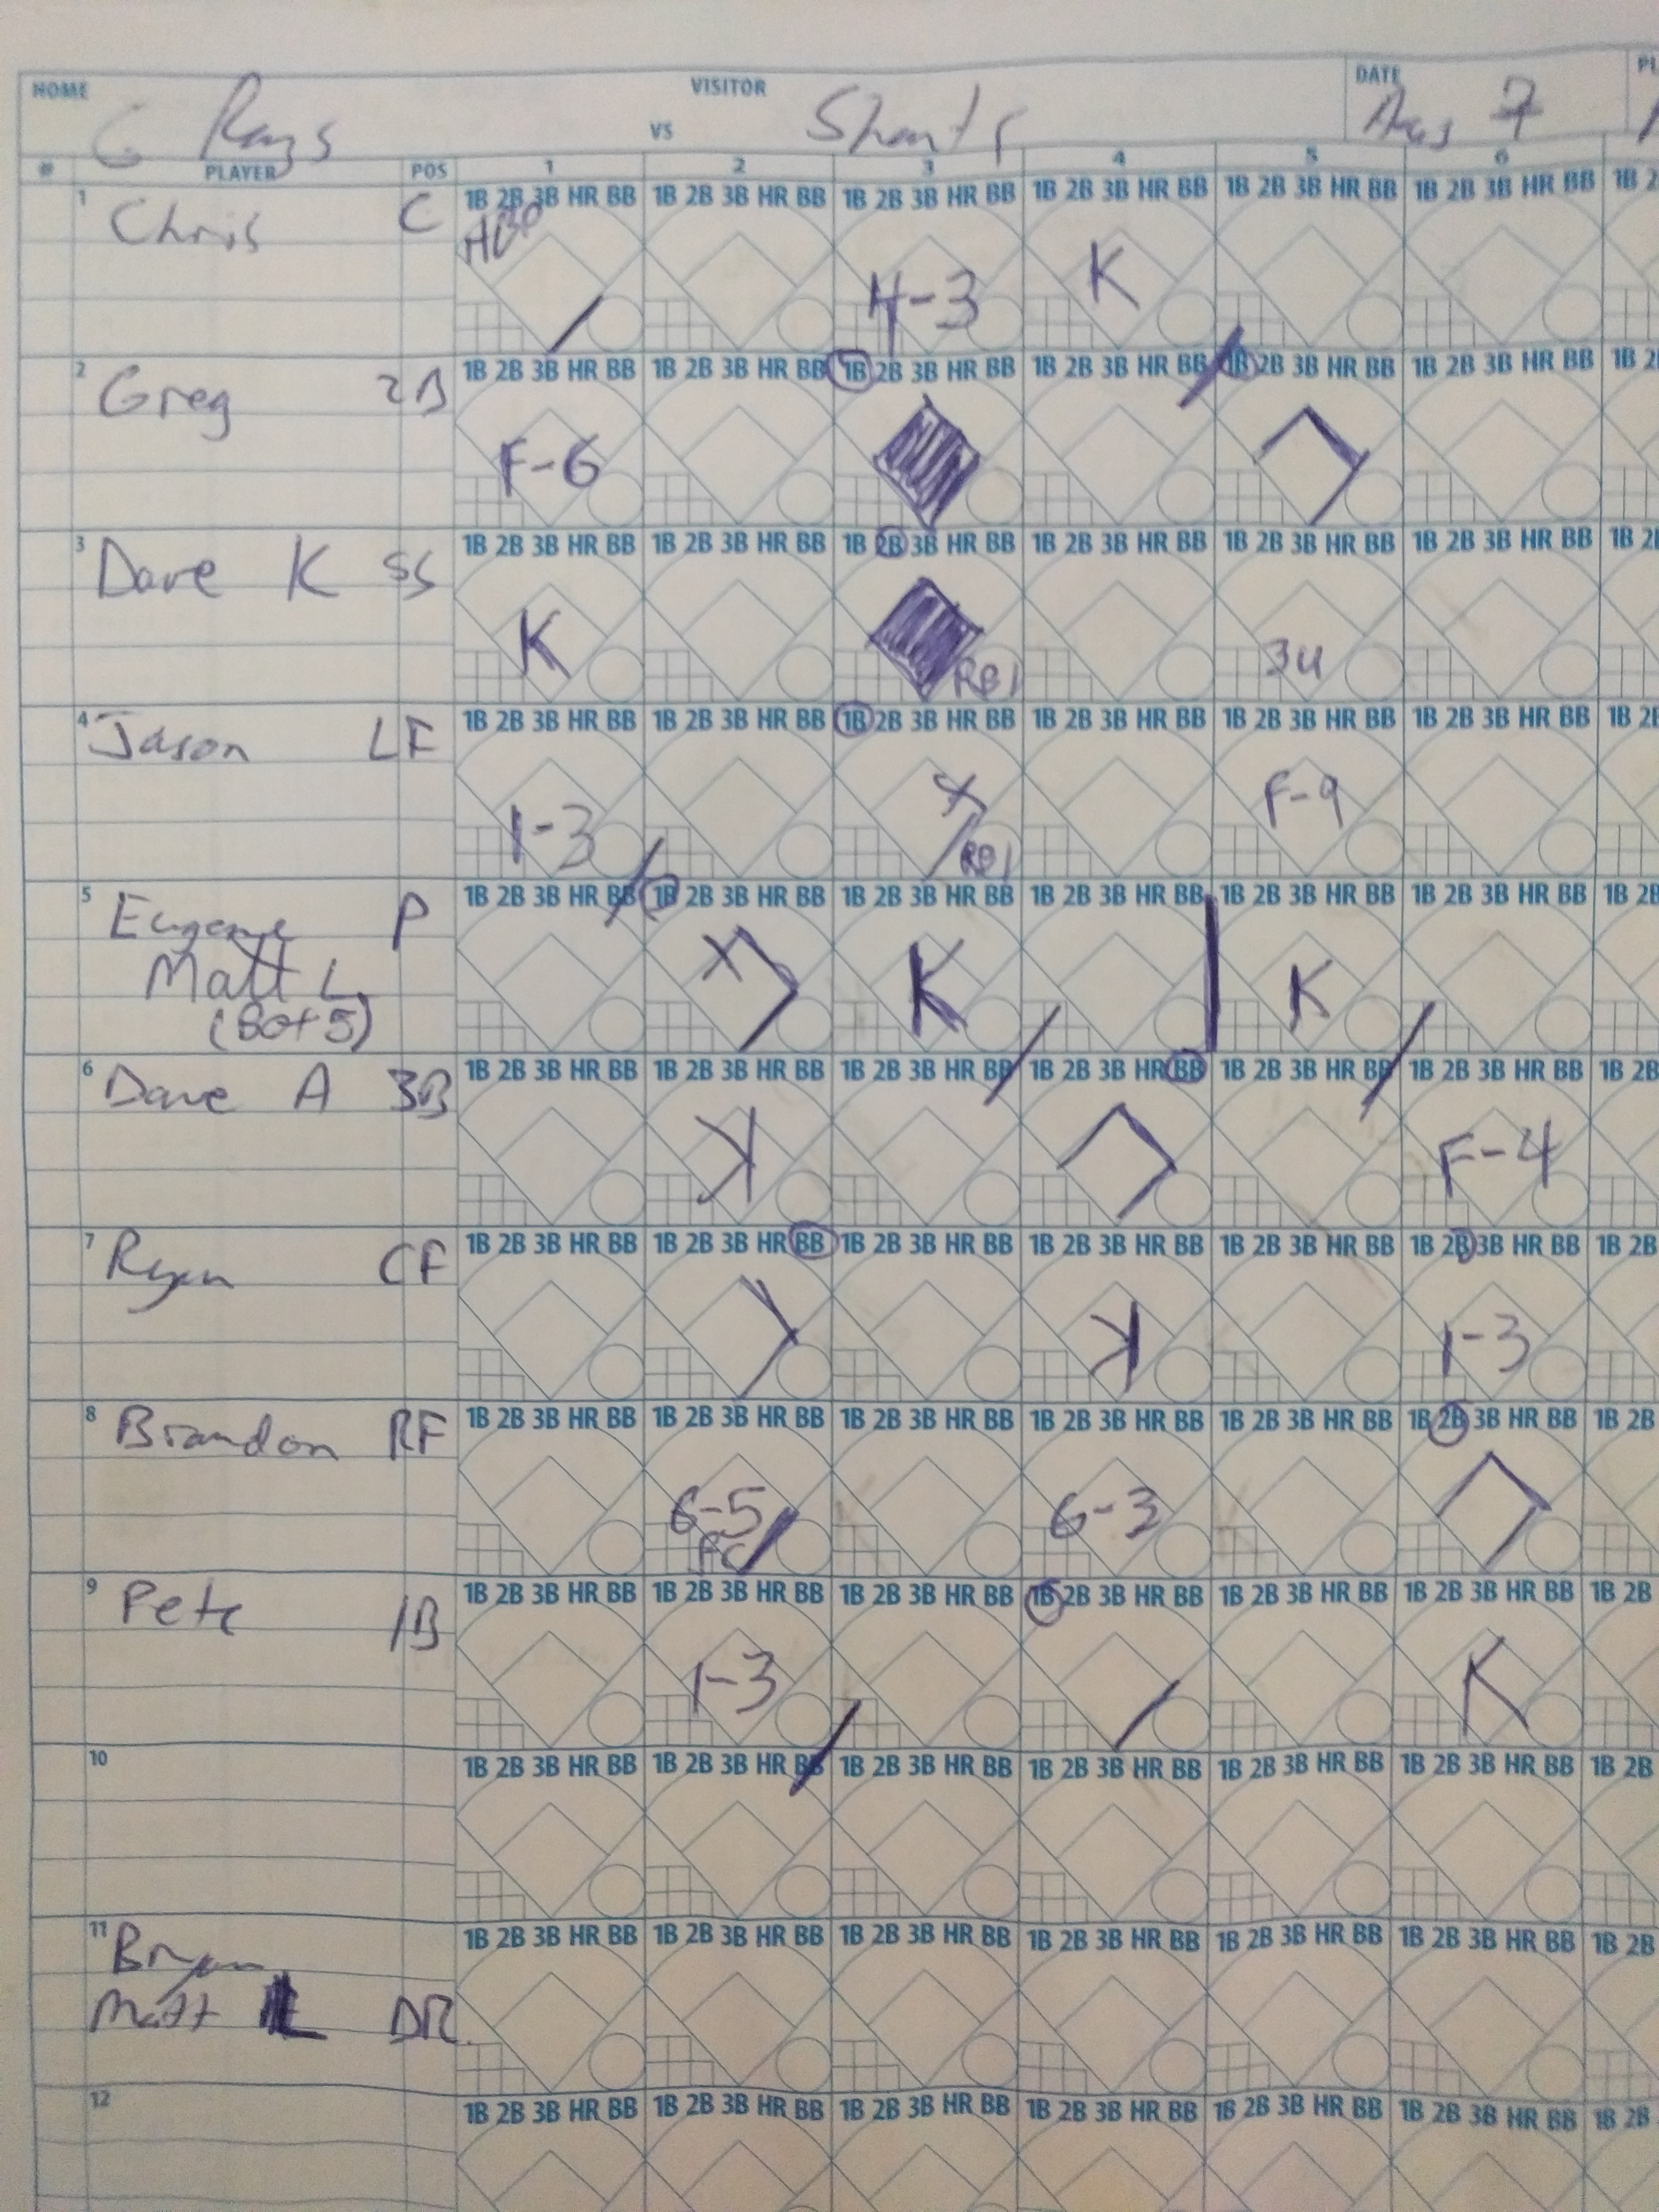 HOME VISITOR DATE
G Rays VS Shants Aug 7
# PLAYER POS 1 2 3 4 5 6
1 1B 2B 3B HR BB 1B 2B 3B HR BB 1B 2B 3B HR BB 1B 2B 3B HR BB 1B 2B 3B HR BB 1B 2B 3B HR BB 1B 2
Chris C HBP 4-3 K
2 1B 2B 3B HR BB 1B 2B 3B HR BB 1B 2B 3B HR BB 1B 2B 3B HR BB 1B 2B 3B HR BB 1B 2B 3B HR BB 1B 2
Greg 2B F-6
3 1B 2B 3B HR BB 1B 2B 3B HR BB 1B 2B 3B HR BB 1B 2B 3B HR BB 1B 2B 3B HR BB 1B 2B 3B HR BB 1B 2
Dave K SS K RBI 3U
4 1B 2B 3B HR BB 1B 2B 3B HR BB 1B 2B 3B HR BB 1B 2B 3B HR BB 1B 2B 3B HR BB 1B 2B 3B HR BB 1B 2B
Jason LF 1-3 X RBI F-9
5 1B 2B 3B HR BB 1B 2B 3B HR BB 1B 2B 3B HR BB 1B 2B 3B HR BB 1B 2B 3B HR BB 1B 2B 3B HR BB 1B 2B
Eugene P X K K
Matt L
(Bot 5)
6 1B 2B 3B HR BB 1B 2B 3B HR BB 1B 2B 3B HR BB 1B 2B 3B HR BB 1B 2B 3B HR BB 1B 2B 3B HR BB 1B 2B
Dave A 3B K F-4
7 1B 2B 3B HR BB 1B 2B 3B HR BB 1B 2B 3B HR BB 1B 2B 3B HR BB 1B 2B 3B HR BB 1B 2B 3B HR BB 1B 2B
Ryan CF K 1-3
8 1B 2B 3B HR BB 1B 2B 3B HR BB 1B 2B 3B HR BB 1B 2B 3B HR BB 1B 2B 3B HR BB 1B 2B 3B HR BB 1B 2B
Brandon RF 6-5 FC 6-3
9 1B 2B 3B HR BB 1B 2B 3B HR BB 1B 2B 3B HR BB 1B 2B 3B HR BB 1B 2B 3B HR BB 1B 2B 3B HR BB 1B 2B
Pete 1B 1-3 K
10 1B 2B 3B HR BB 1B 2B 3B HR BB 1B 2B 3B HR BB 1B 2B 3B HR BB 1B 2B 3B HR BB 1B 2B 3B HR BB 1B 2B
11 1B 2B 3B HR BB 1B 2B 3B HR BB 1B 2B 3B HR BB 1B 2B 3B HR BB 1B 2B 3B HR BB 1B 2B 3B HR BB 1B 2B
Bryan
Matt L DR
12 1B 2B 3B HR BB 1B 2B 3B HR BB 1B 2B 3B HR BB 1B 2B 3B HR BB 1B 2B 3B HR BB 1B 2B 3B HR BB 1B 2B